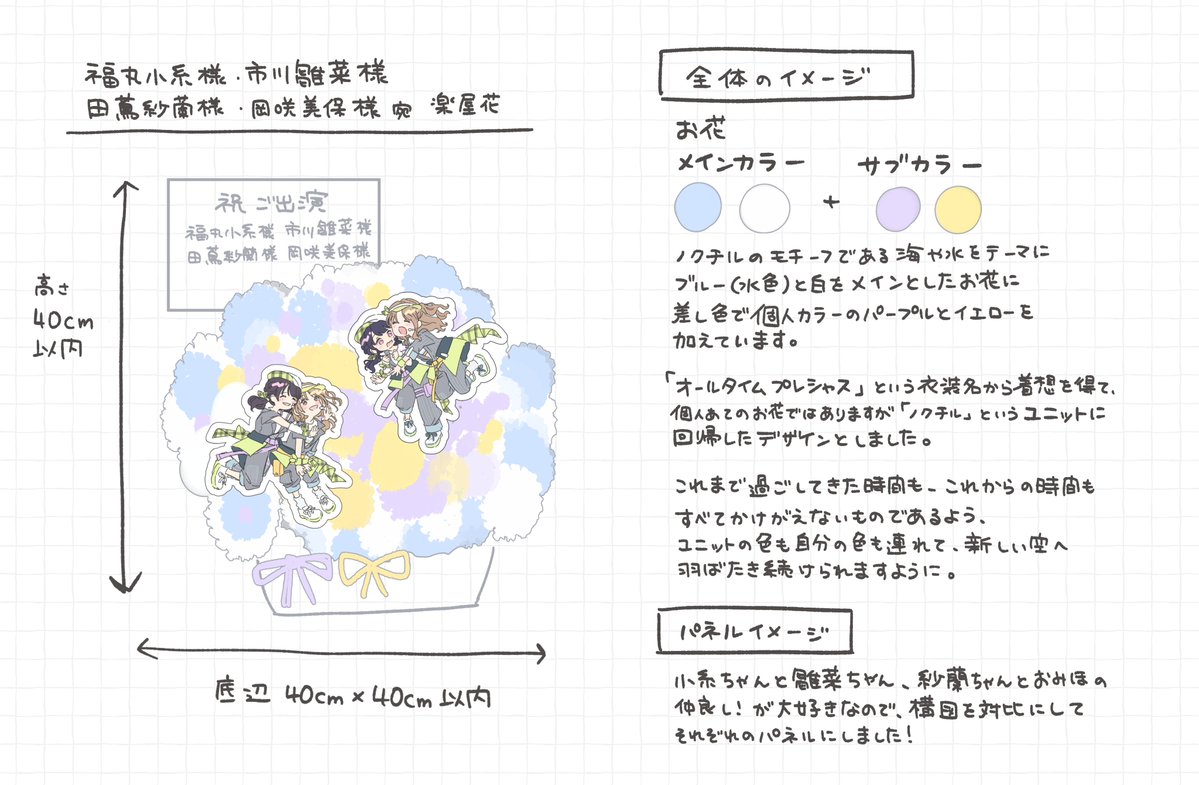 福丸小糸様・市川雛菜様
田嶌紗蘭様・岡咲美保様 宛 楽屋花
祝 ご出演
福丸小糸様 市川雛菜様
田嶌紗蘭様 岡咲美保様
高さ
40cm
以内
底辺 40cm×40cm以内
全体のイメージ
お花
メインカラー + サブカラー
ノクチルのモチーフである海や水をテーマに
ブルー(水色)と白をメインとしたお花に
差し色で個人カラーのパープルとイエローを
加えています。
「オールタイムプレシャス」という衣装名から着想を得て、
個人あてのお花ではありますが「ノクチル」というユニットに
回帰したデザインとしました。
これまで過ごしてきた時間も、これからの時間も
すべてかけがえないものであるよう、
ユニットの色も自分の色も連れて、新しい空へ
羽ばたき続けられますように。
パネルイメージ
小糸ちゃんと雛菜ちゃん、紗蘭ちゃんとおみほの
仲良し!が大好きなので、構図を対比にして
それぞれのパネルにしました!